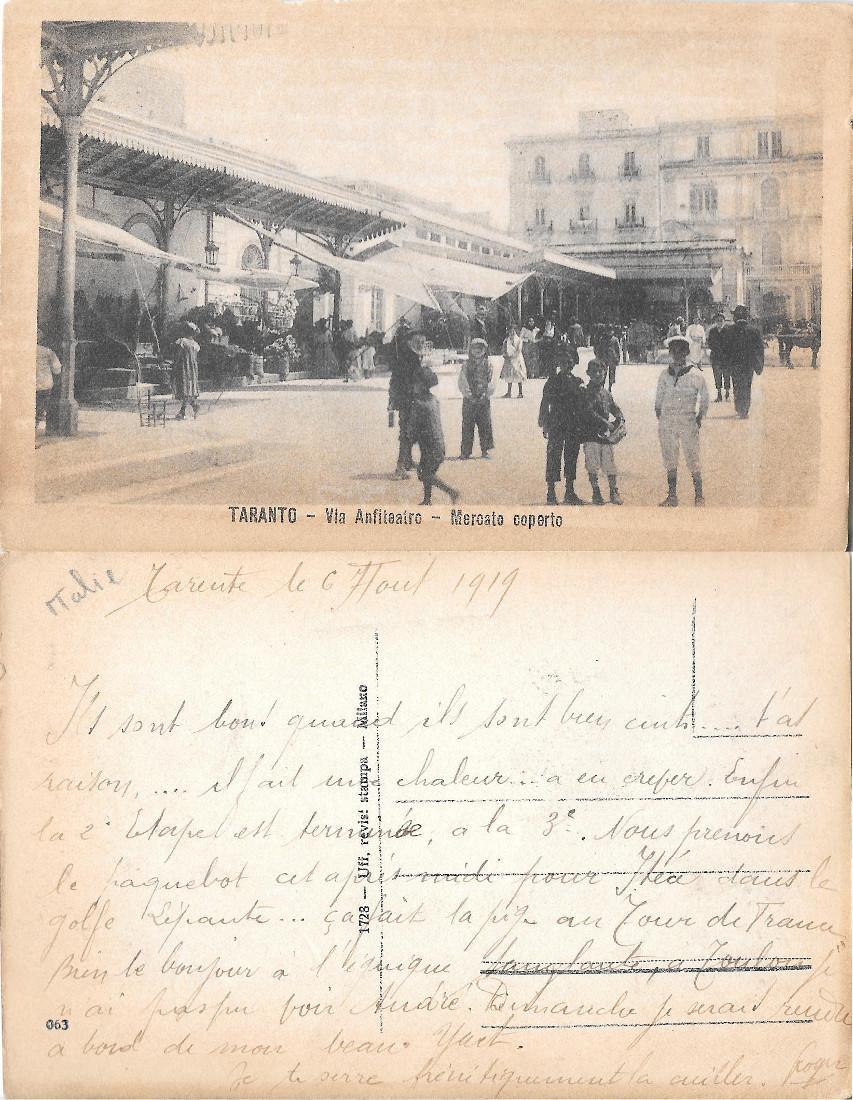 TARANTO – Via Anfiteatro – Mercato coperto
Italie
Tarente le 6 Aout 1919
Ils sont bons quand ils sont bien cuits .... t'as
raison, .... il fait une chaleur ... a en crever. Enfin
la 2e Etape est terminée, a la 3e. Nous prenons
le paquebot cet après midi pour Itéa dans le
golfe Lépante ... ça fait la pige au Tour de France
Bien le bonjour à l'équique à Toulon je
n'ai pas pu voir André. Dimanche je serai rendu
a bord de mon beau Yact.
Je te serre frénétiquement la cuiller. Roger
1728 — Uff. revis. stampa — Milano
063